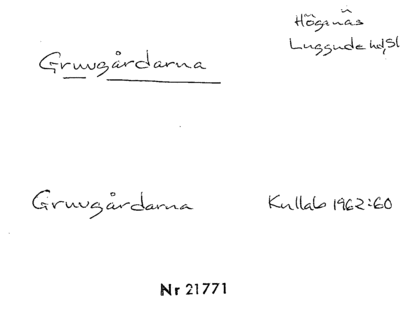 Höganäs
Luggude hd, Sk
Gruvgårdarna
Gruvgårdarna Kullab 1962:60
Nr 21771